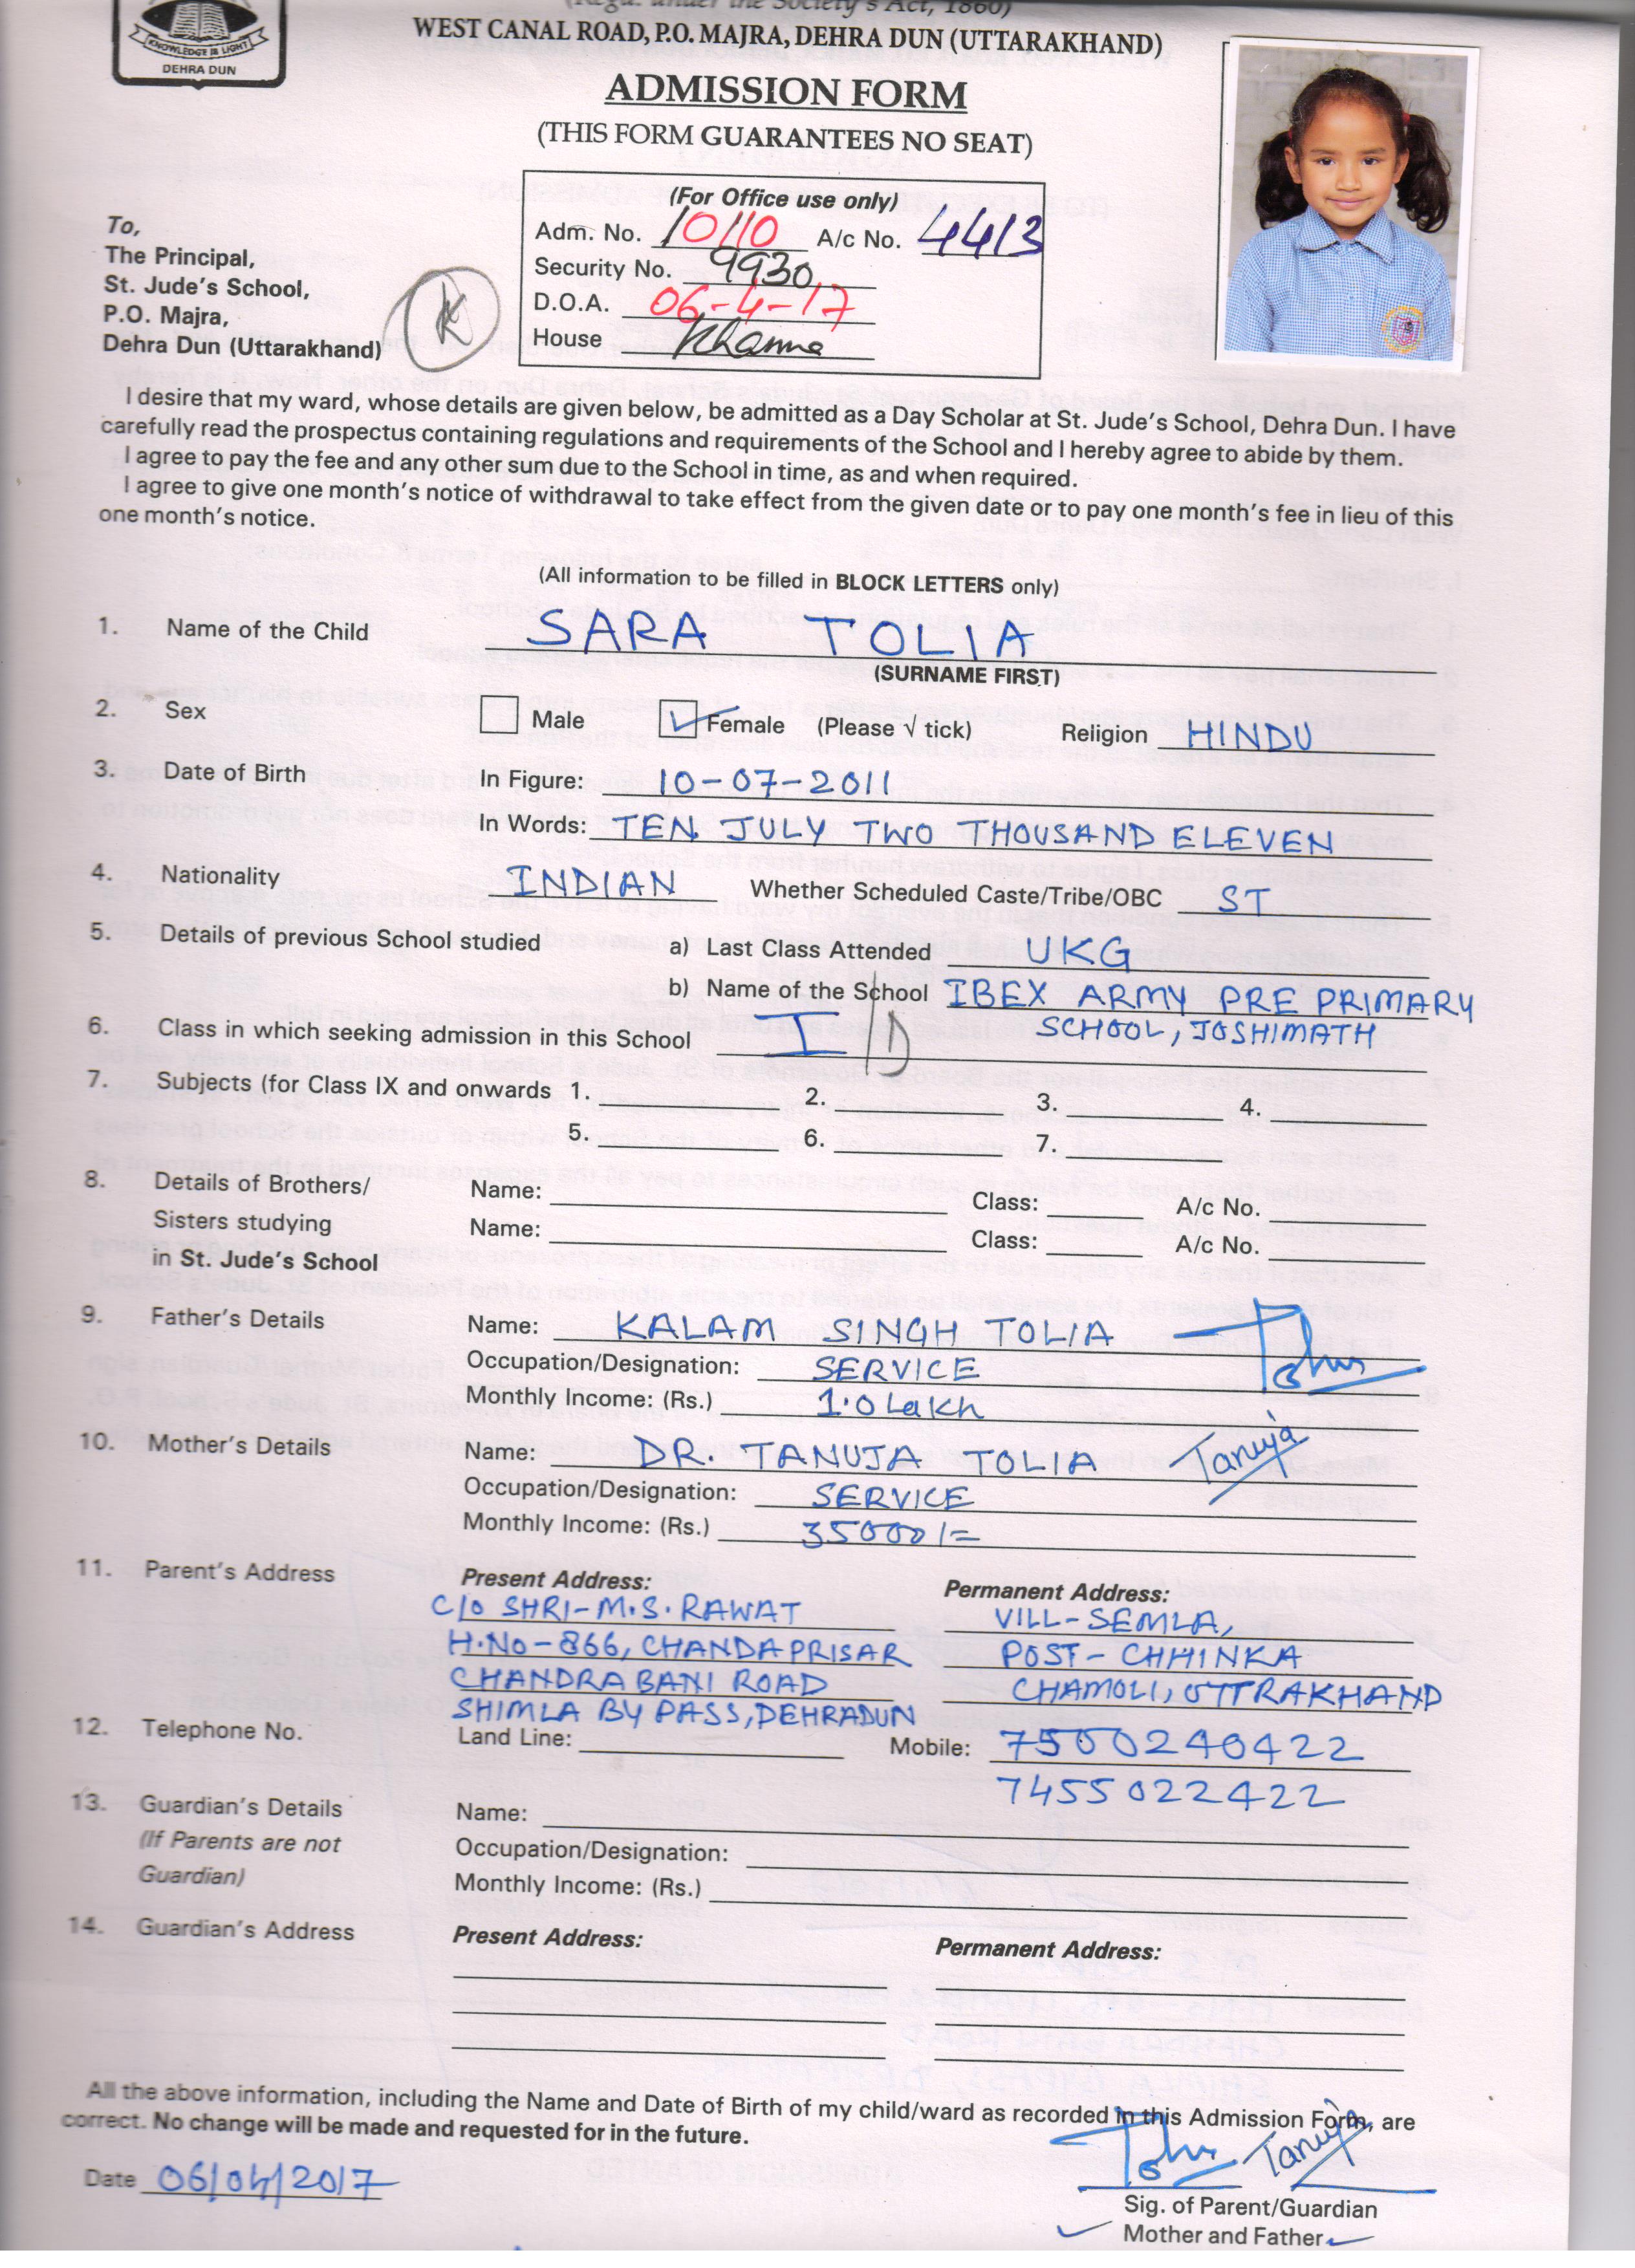 (Regd. under the Society's Act, 1860)
KNOWLEDGE IS LIGHT
DEHRA DUN
WEST CANAL ROAD, P.O. MAJRA, DEHRA DUN (UTTARAKHAND)
ADMISSION FORM
(THIS FORM GUARANTEES NO SEAT)
(For Office use only)
Adm. No. 10110 A/c No. 4413
Security No. 9930
D.O.A. 06-4-17
House Khanna
To,
The Principal,
St. Jude's School,
P.O. Majra,
Dehra Dun (Uttarakhand)
K
I desire that my ward, whose details are given below, be admitted as a Day Scholar at St. Jude's School, Dehra Dun. I have
carefully read the prospectus containing regulations and requirements of the School and I hereby agree to abide by them.
I agree to pay the fee and any other sum due to the School in time, as and when required.
I agree to give one month's notice of withdrawal to take effect from the given date or to pay one month's fee in lieu of this
one month's notice.
(All information to be filled in BLOCK LETTERS only)
1. Name of the Child SARA TOLIA
(SURNAME FIRST)
2. Sex Male Female (Please √ tick) Religion HINDU
3. Date of Birth In Figure: 10-07-2011
In Words: TEN JULY TWO THOUSAND ELEVEN
4. Nationality INDIAN Whether Scheduled Caste/Tribe/OBC ST
5. Details of previous School studied a) Last Class Attended UKG
b) Name of the School IBEX ARMY PRE PRIMARY
SCHOOL, JOSHIMATH
6. Class in which seeking admission in this School I/D
7. Subjects (for Class IX and onwards 1. 2. 3. 4.
5. 6. 7.
8. Details of Brothers/ Name: Class: A/c No.
Sisters studying Name: Class: A/c No.
in St. Jude's School
9. Father's Details Name: KALAM SINGH TOLIA
Occupation/Designation: SERVICE
Monthly Income: (Rs.) 1.0 Lakh
10. Mother's Details Name: DR. TANUJA TOLIA Tanuja
Occupation/Designation: SERVICE
Monthly Income: (Rs.) 35000/=
11. Parent's Address Present Address: Permanent Address:
C/O SHRI-M.S. RAWAT VILL-SEMLA,
H.No-866, CHANDAPRISAR POST-CHHINKA
CHANDRABANI ROAD CHAMOLI, UTTRAKHAND
SHIMLA BY PASS, DEHRADUN
12. Telephone No. Land Line: Mobile: 7500240422
7455022422
13. Guardian's Details Name:
(If Parents are not Occupation/Designation:
Guardian) Monthly Income: (Rs.)
14. Guardian's Address Present Address: Permanent Address:
All the above information, including the Name and Date of Birth of my child/ward as recorded in this Admission Form, are
correct. No change will be made and requested for in the future.
Tanuja
Date 06/04/2017
Sig. of Parent/Guardian
Mother and Father